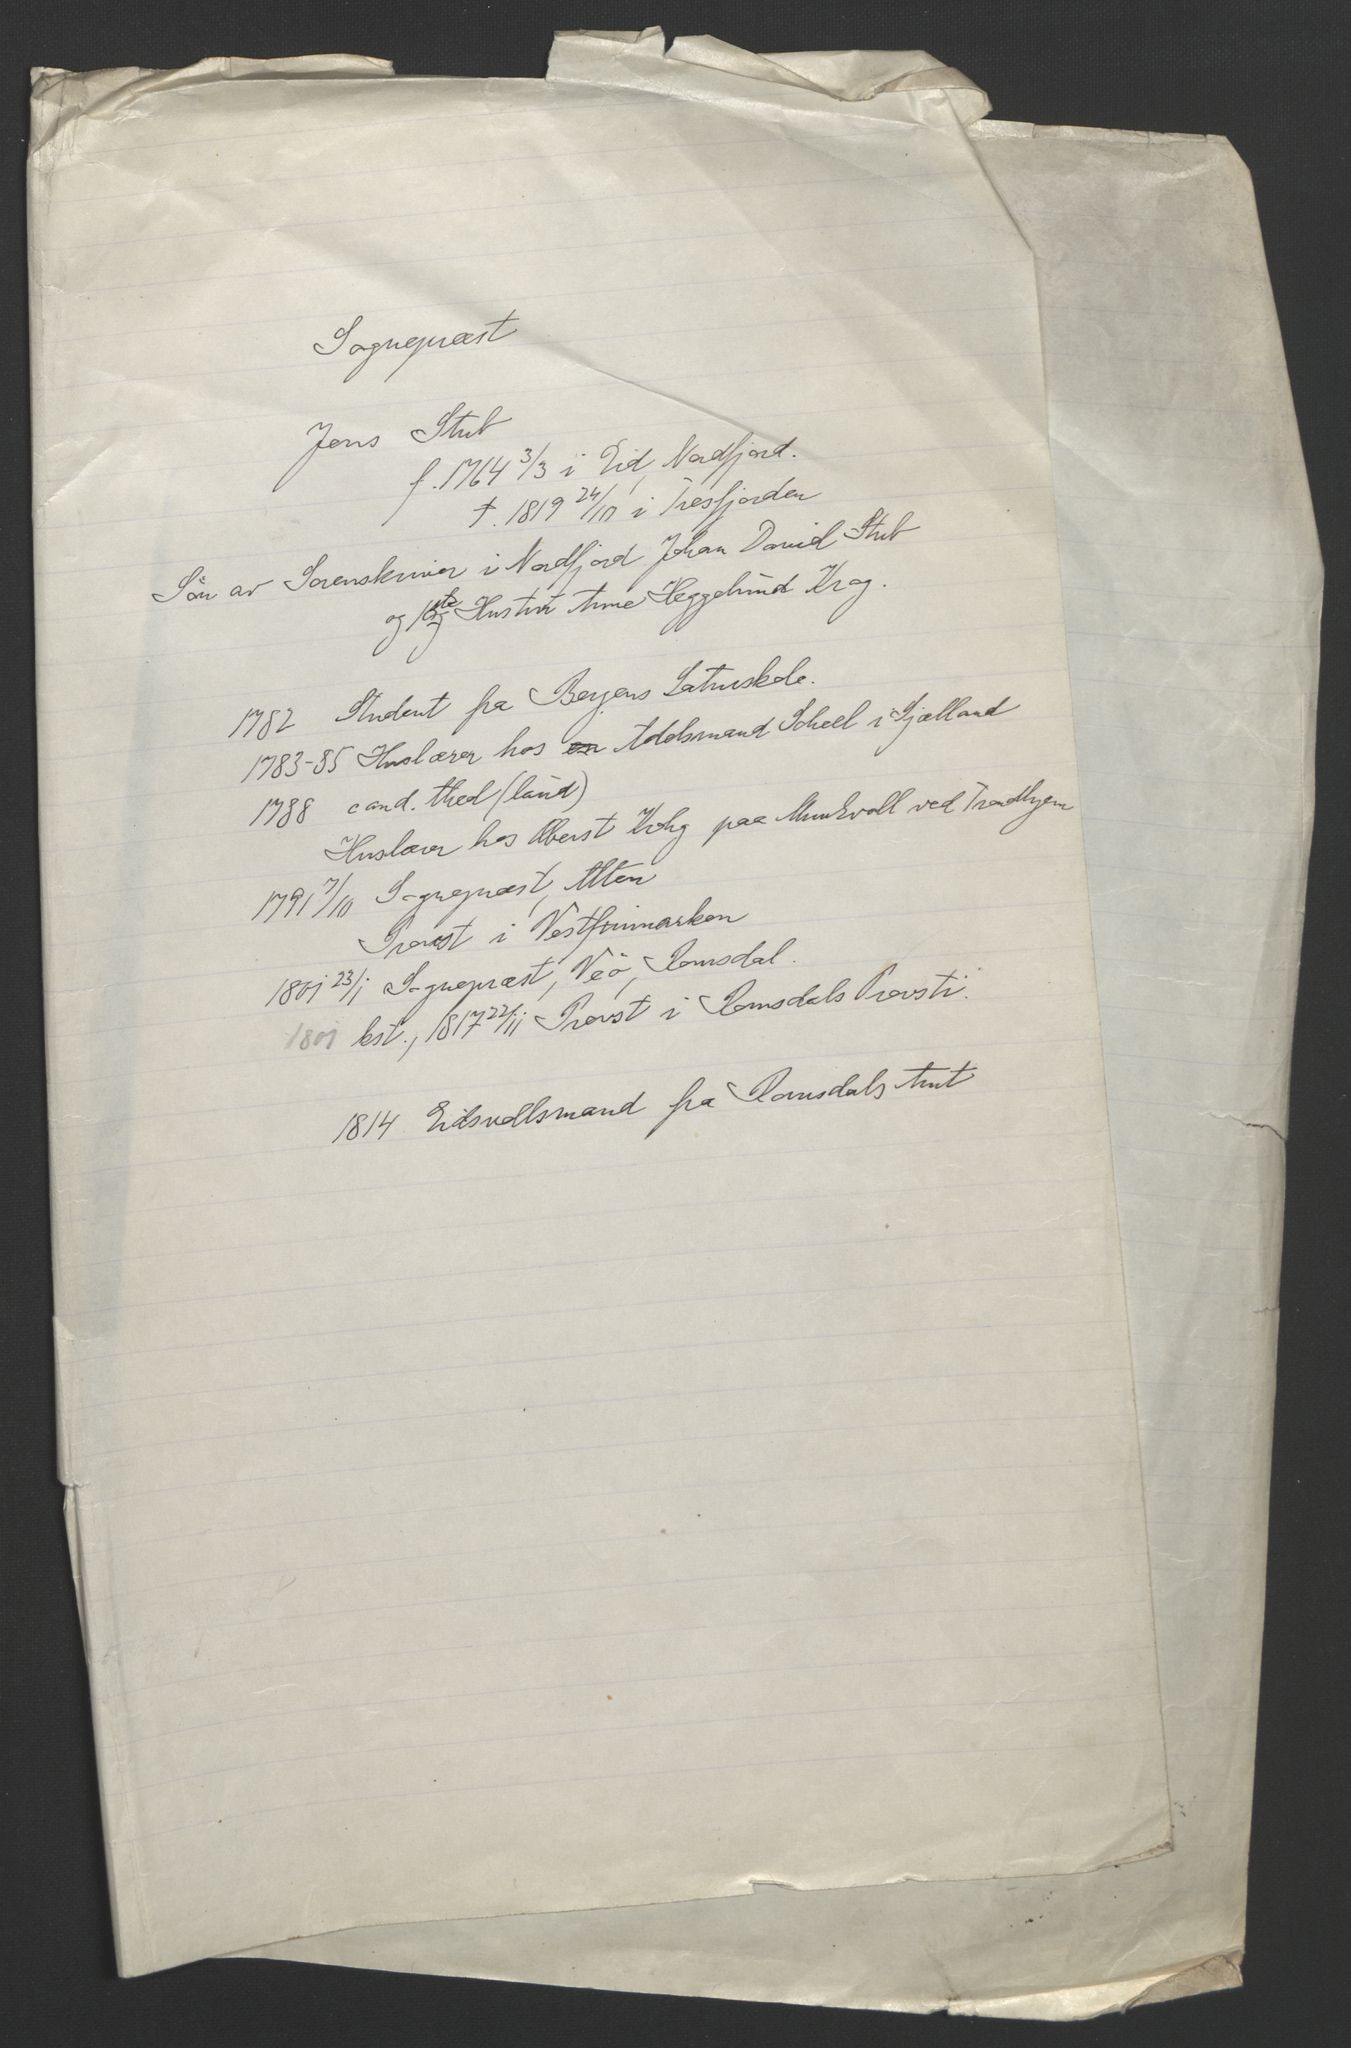 Sognepræst
Jens Stub
f. 1764 3/3 i Eid, Nordfjord.
†. 1819 24/10 i Tresfjorden
Sön av Sorenskriver i Nordfjord Johan David Stub
og 1ste Hustru Anne Heggelund Krog.
1782 Student fra Bergens Latinskole.
1783-85 Huslærer hos en Adelsmand Scheel i Sjælland
1788 cand. theol (laud)
Huslærer hos Oberst Krog paa Munkvoll ved Trondhjem
1791 7/10 Sognepræst, Alten
Provst i Vestfinmarken
1801 23/1 Sognepræst, Veö, Romsdal.
1801 kst., 1817 22/11 Provst i Romsdals Provsti.
1814 Eidsvollsmand fra Romsdals Amt